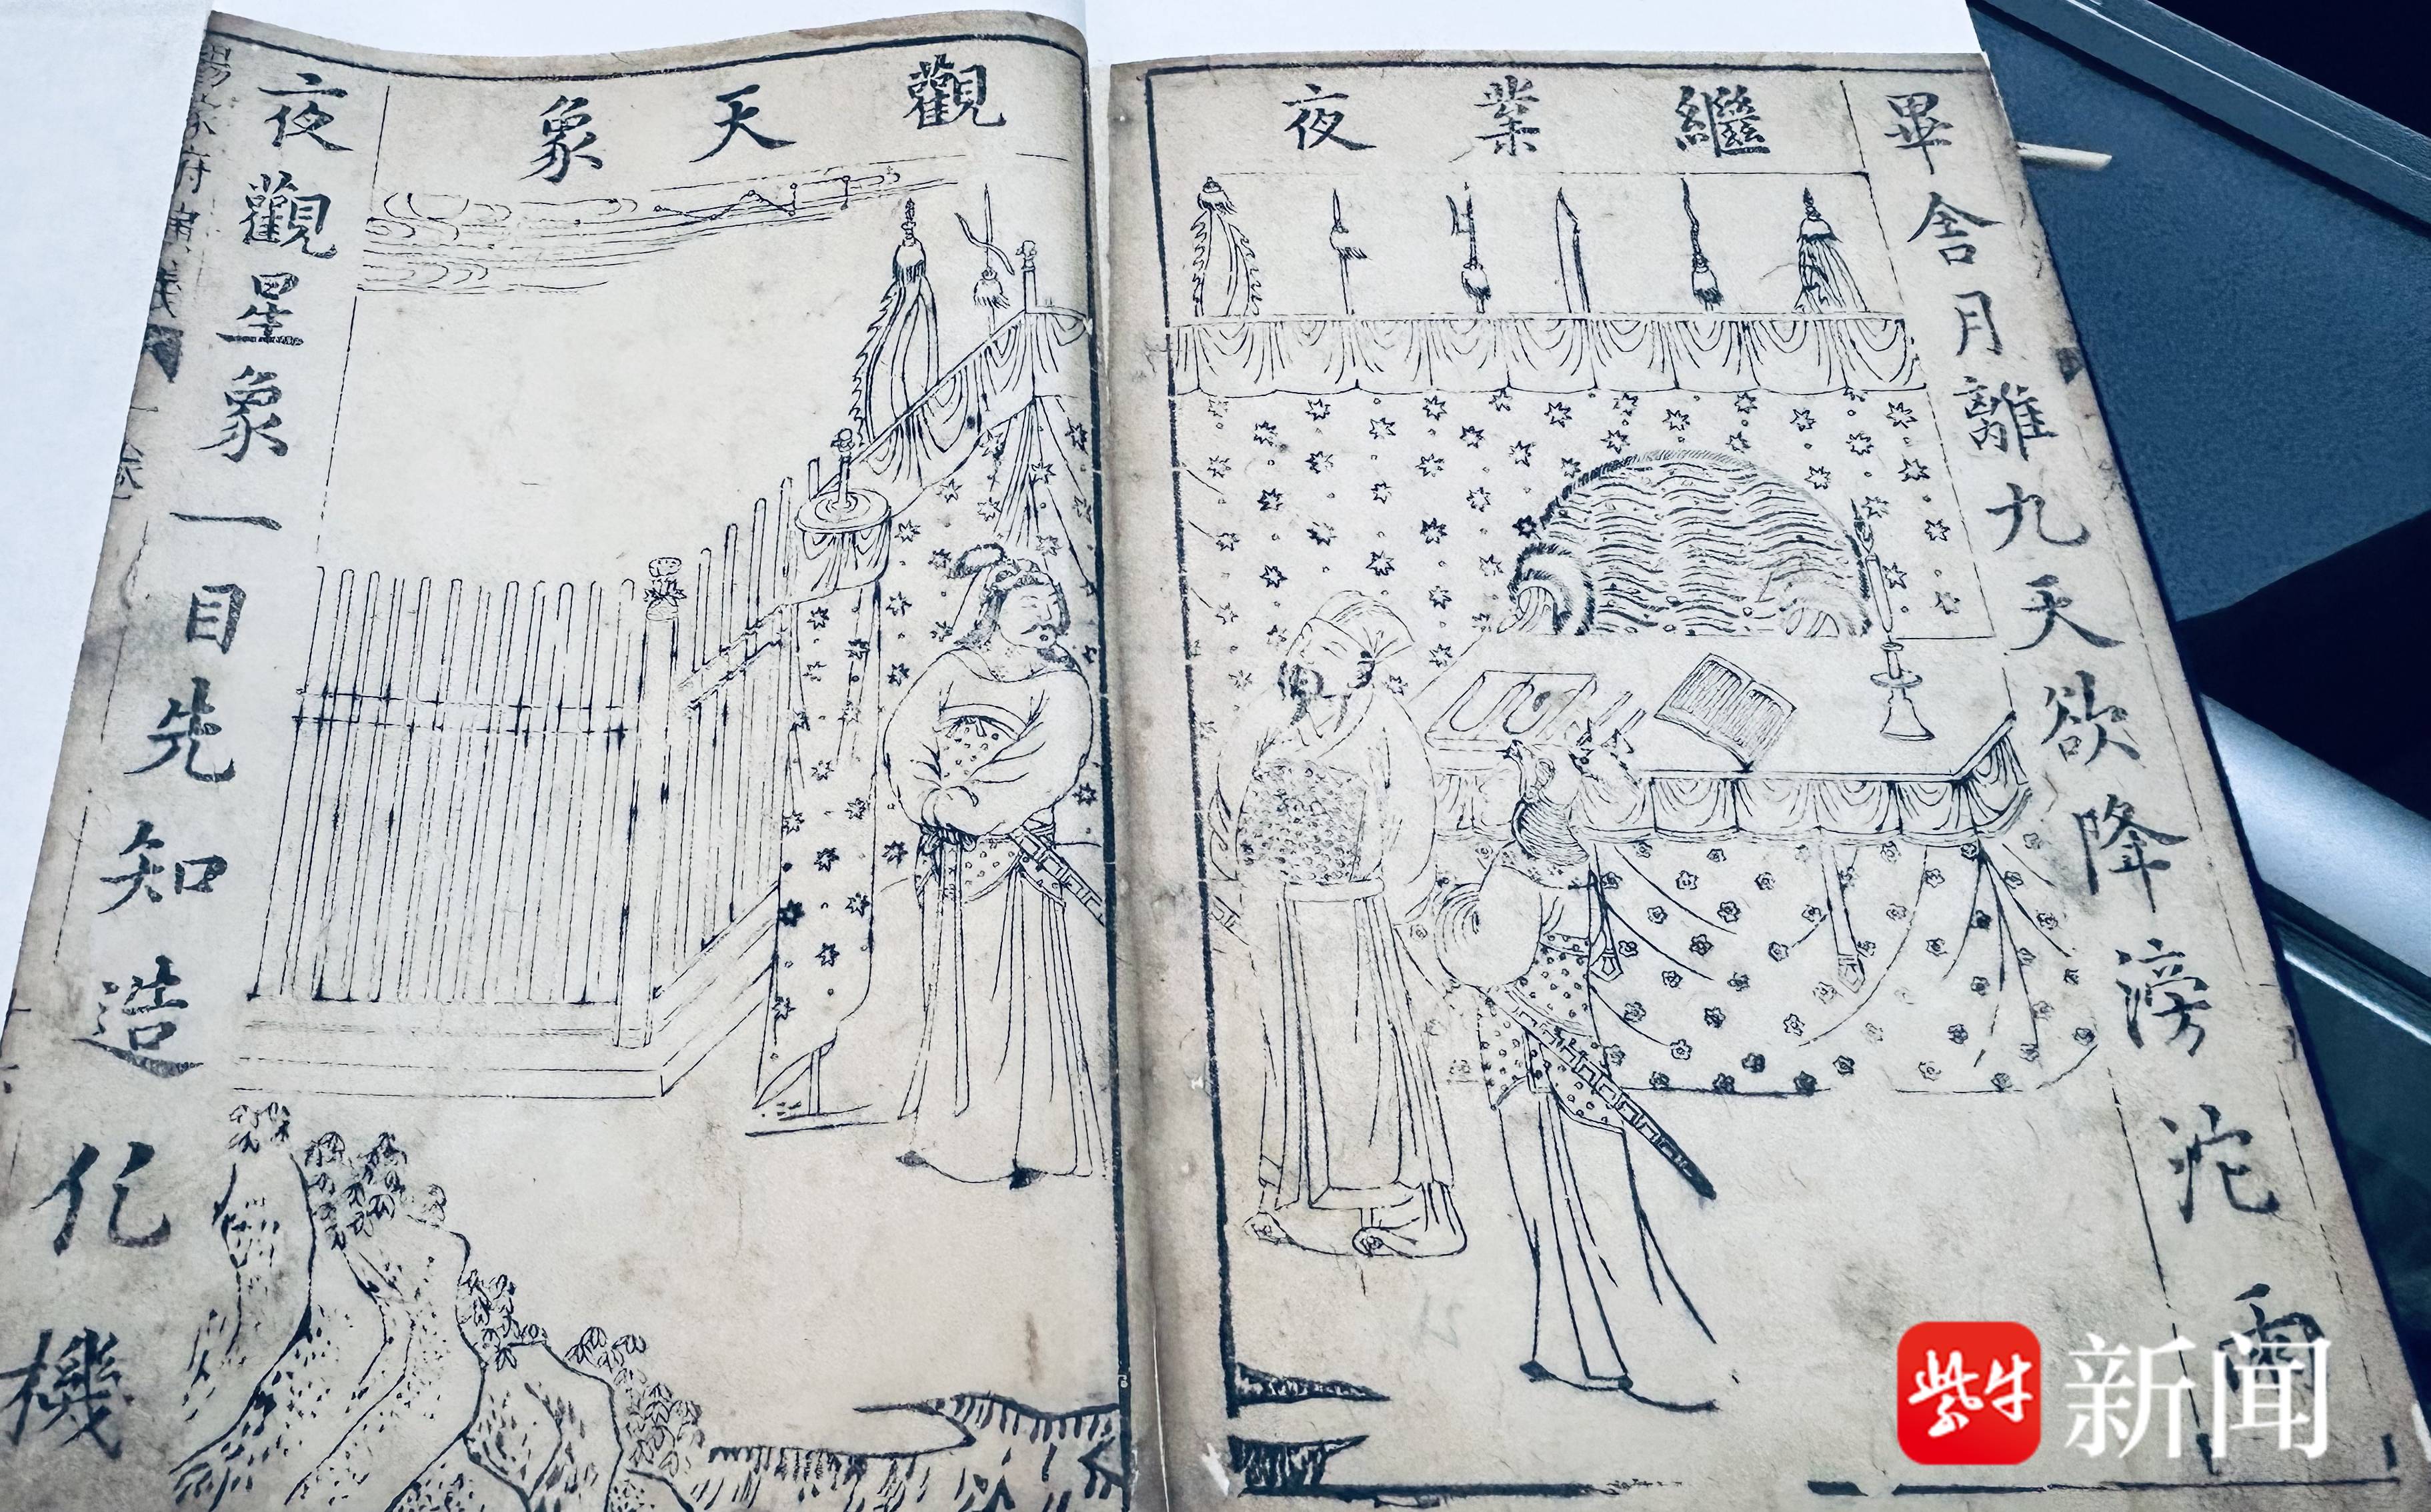 繼業夜
觀天象
畢舍月離九天欲降滂沱雨
夜觀星象一目先知造化機
府演義
紫牛
新闻